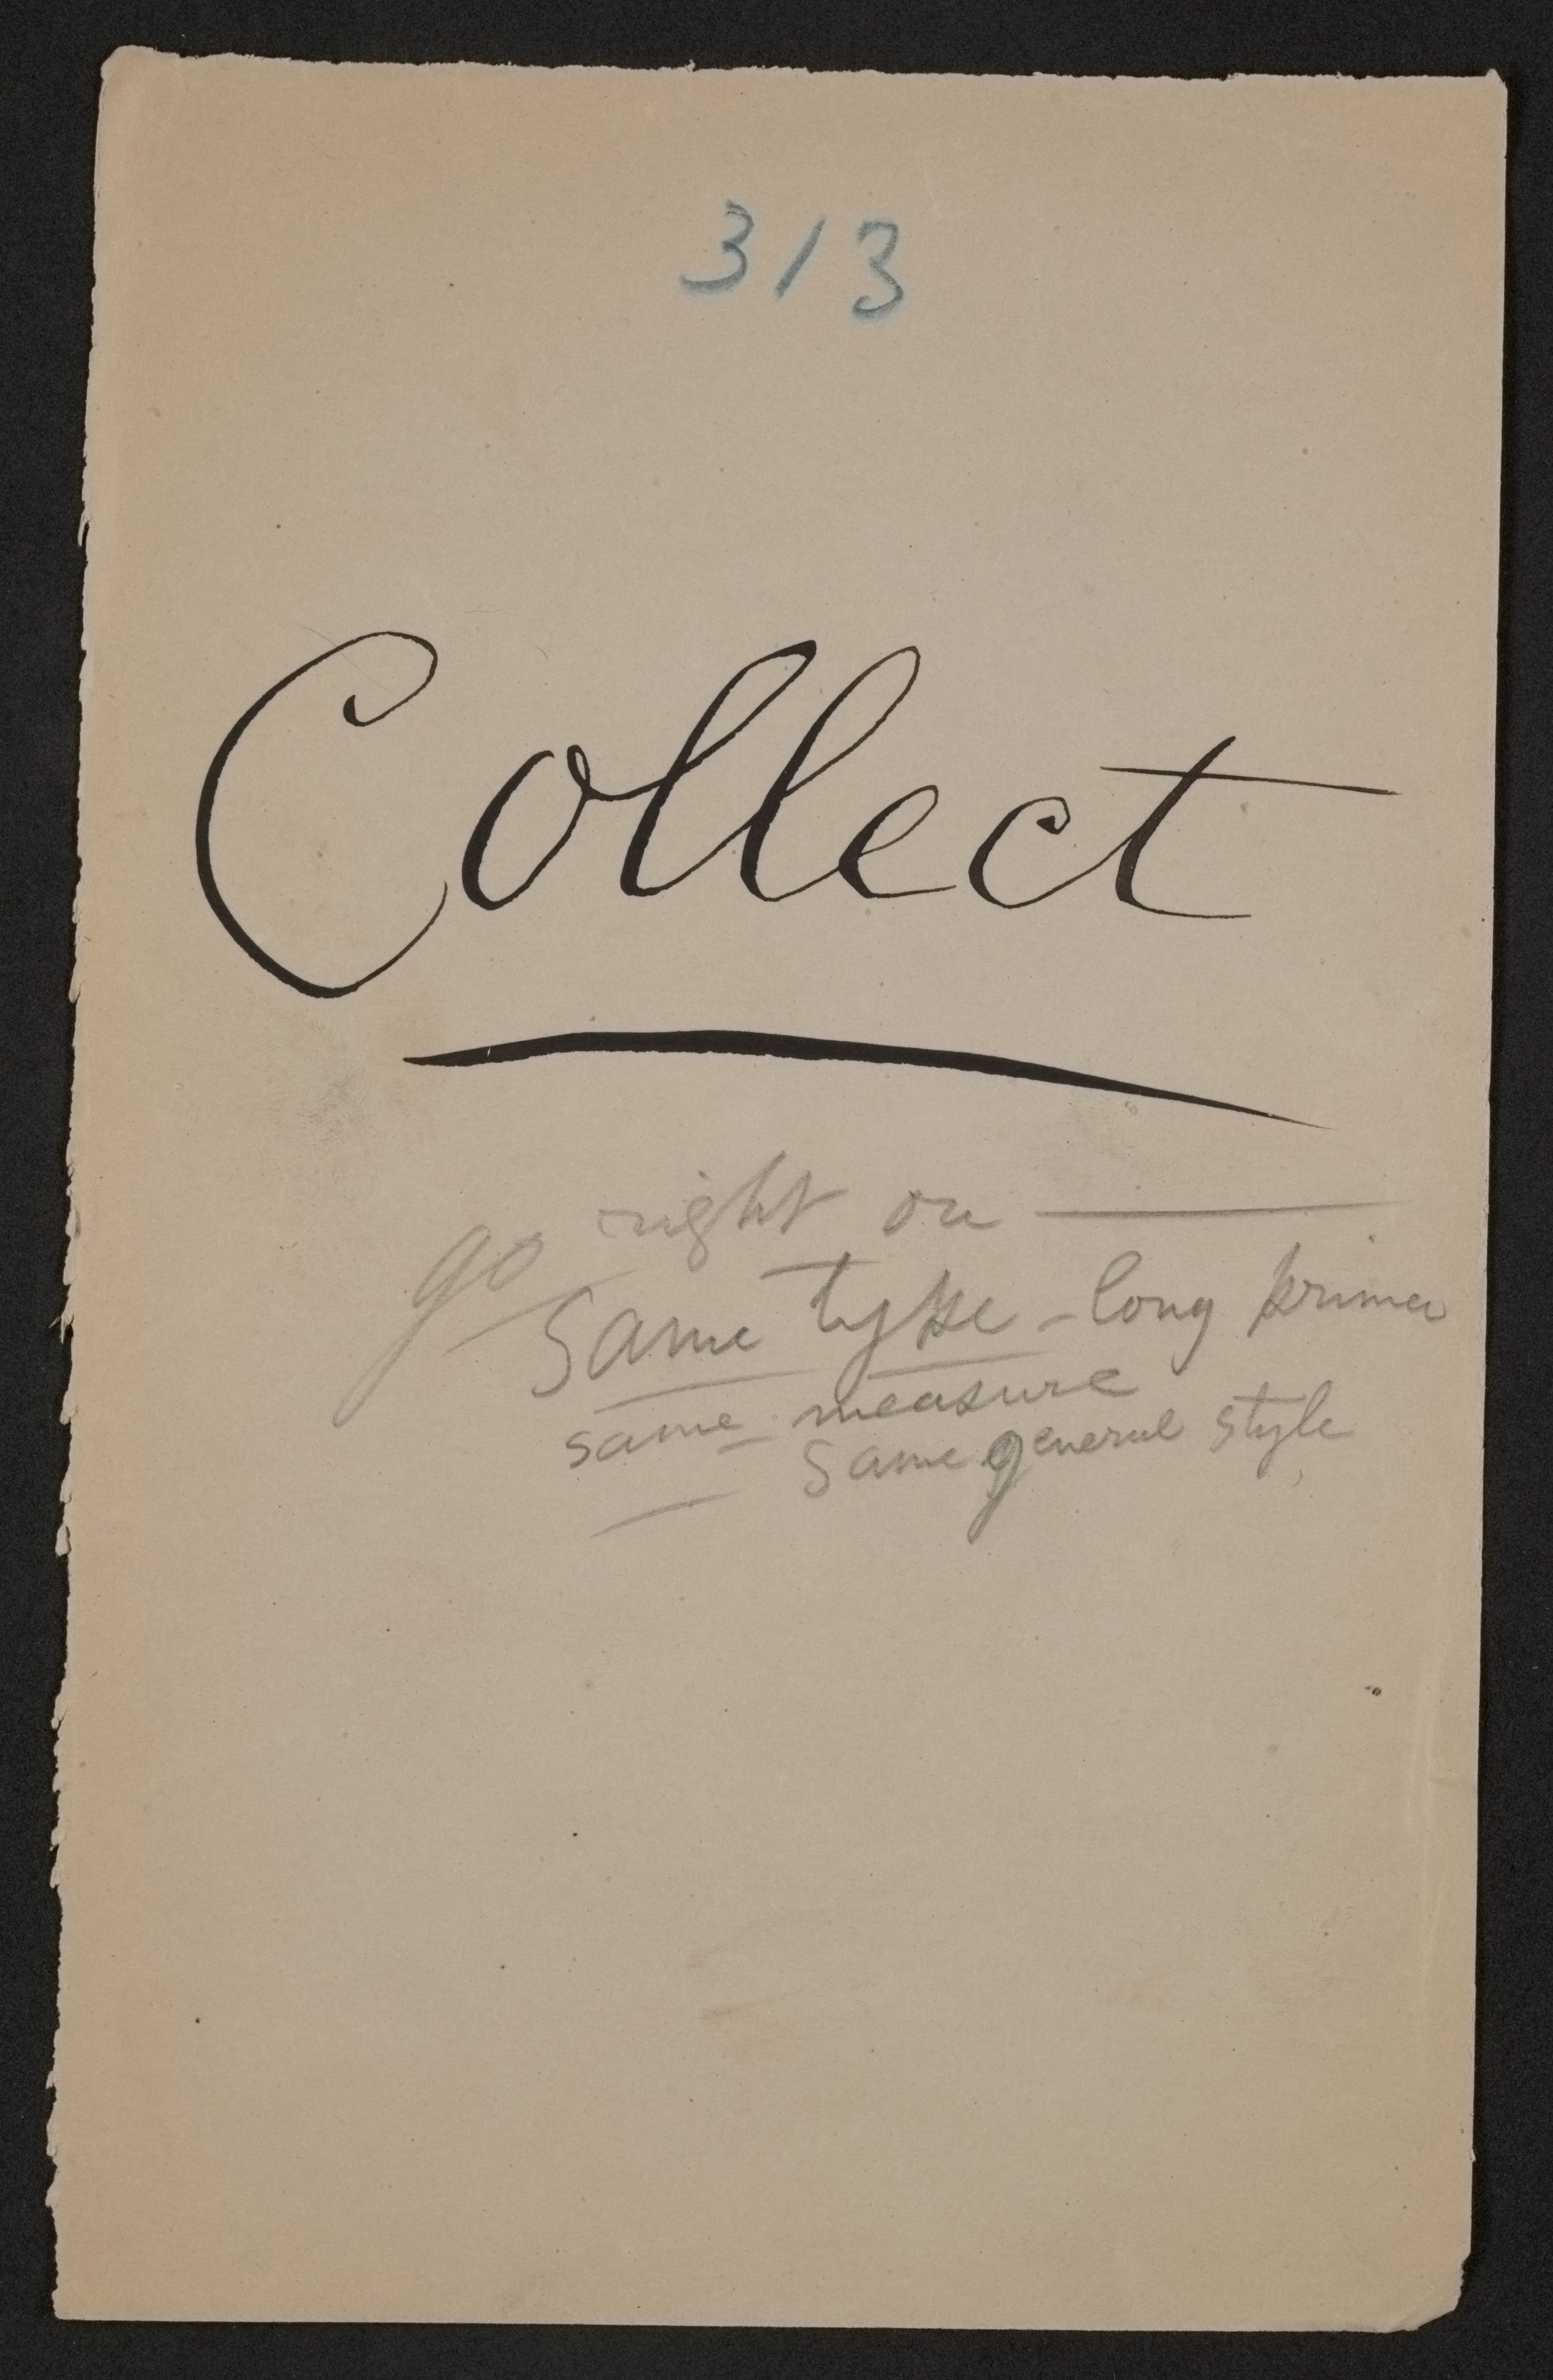 313
Collect
go right on —
same type - long primer
same measure
same general style